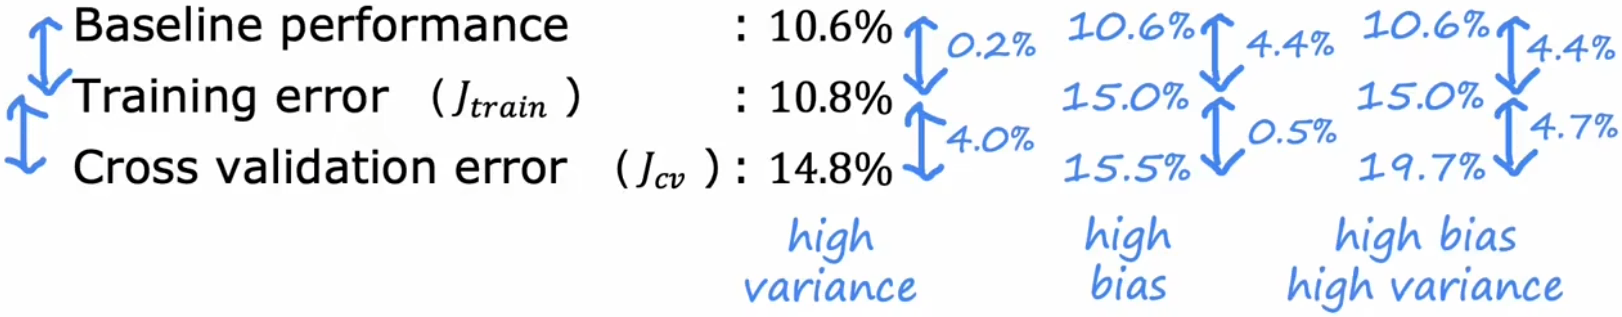 Baseline performance : 10.6% 0.2% 10.6% 4.4% 10.6% 4.4%
Training error (J_train) : 10.8% 15.0% 15.0%
4.0% 0.5% 4.7%
Cross validation error (J_cv) : 14.8% 15.5% 19.7%
high high high bias
variance bias high variance